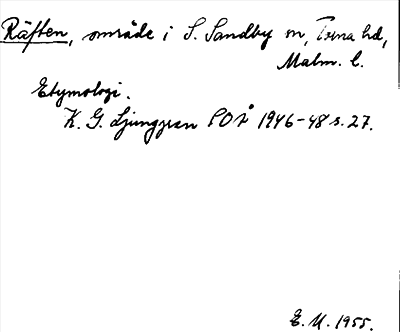 Räften, område i S. Sandby sn, Torna hd,
Malm. l.
Etymologi.
K. G. Ljunggren SOÅ 1946-48 s. 27.
E. M. 1955.